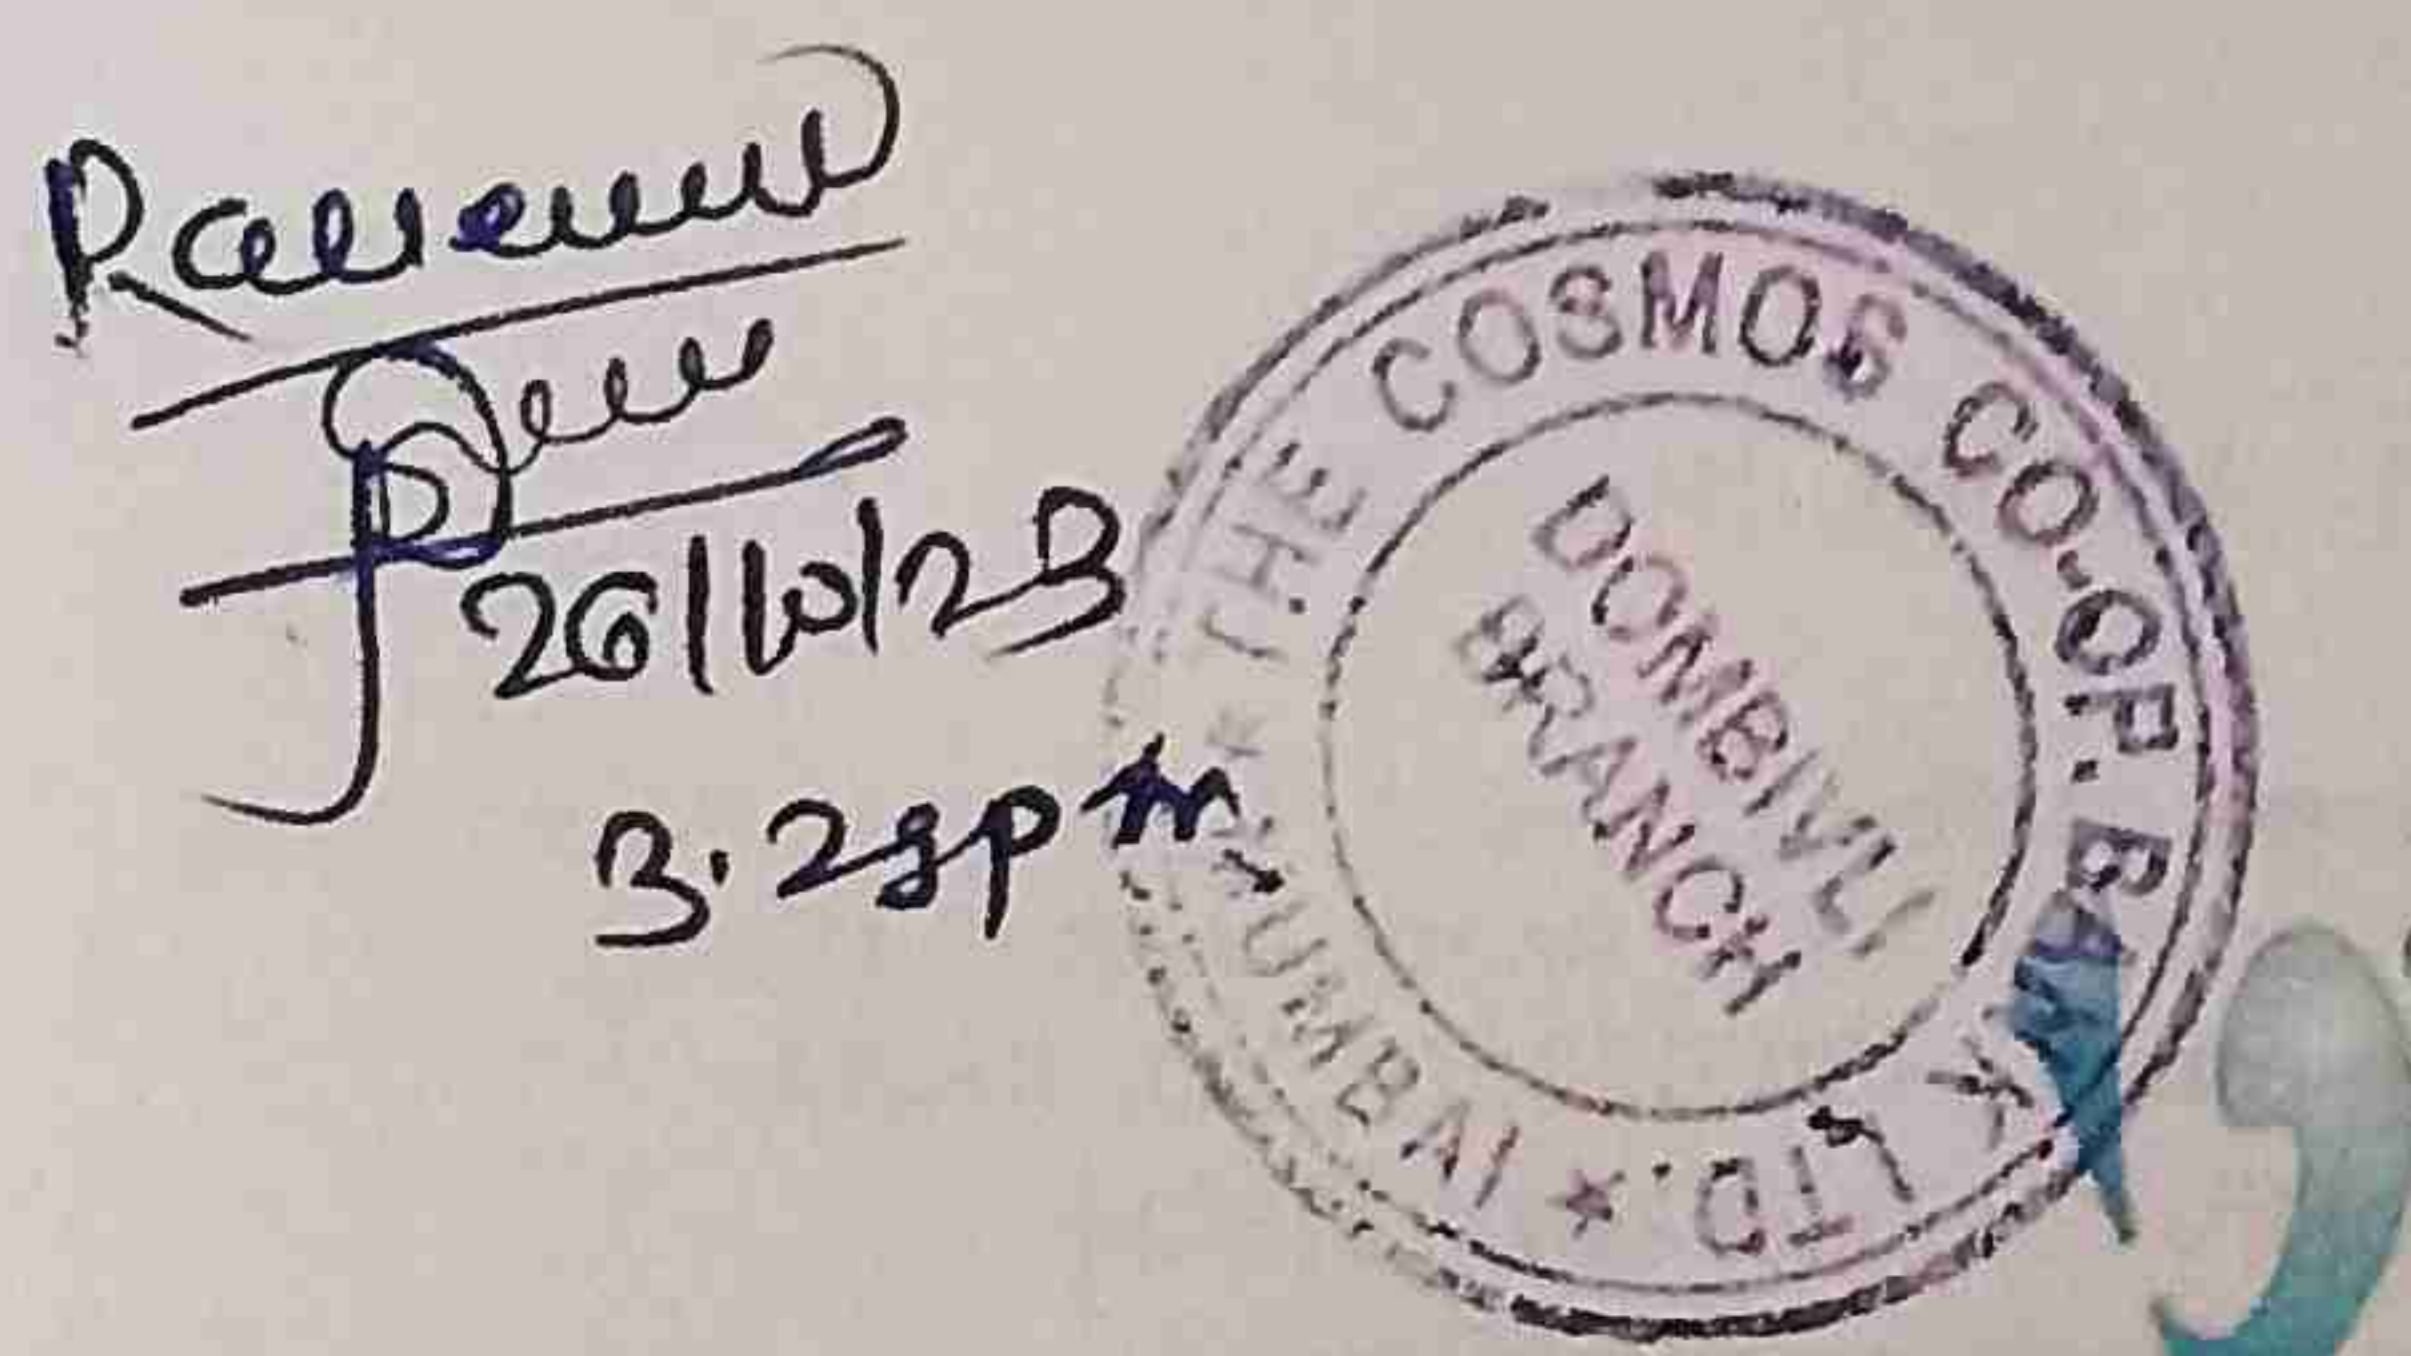 Received
26/10/23
3.28pm
THE COSMOS CO-OP. BANK LTD. ★ MUMBAI ★
DOMBIVLI
BRANCH